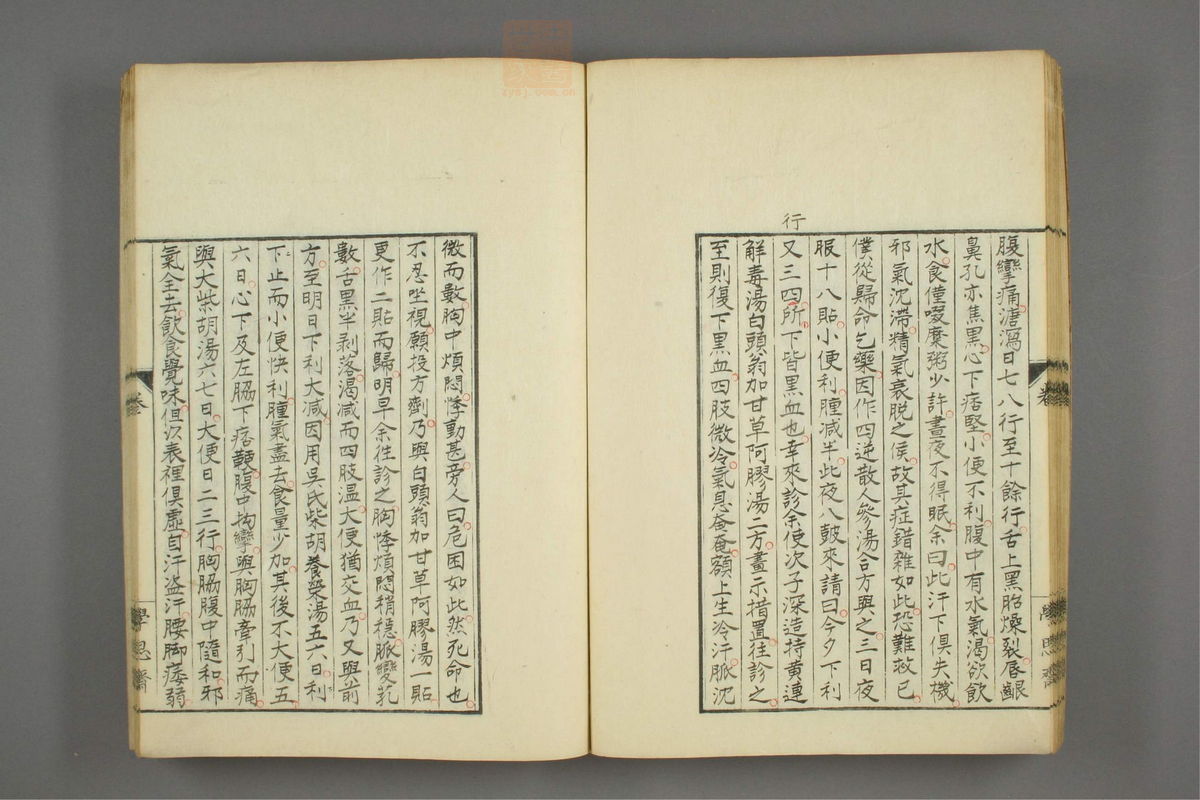 腹攣痛溏瀉日七八行至十餘行舌上黑胎燥裂唇齦
鼻孔亦焦黑心下痞堅小便不利腹中有水氣渴欲飲
水食僅啜糜粥少許晝夜不得眠余曰此汗下俱失機
邪氣沈滯精氣衰脫之候故其症錯雜如此恐難救已
僕從歸命乞藥因作四逆散人參湯合方與之三日夜
服十八貼小便利腫減半此夜八鼓來請曰今夕下利
行
又三四所下皆黑血也幸來診余使次子深造持黃連
解毒湯白頭翁加甘草阿膠湯二方畫示措置往診之
至則復下黑血四肢微冷氣息奄奄額上生冷汗脈沈
微而數胸中煩悶悸動甚旁人曰危困如此然死命也
不忍坐視願投方劑乃與白頭翁加甘草阿膠湯一貼
更作二貼而歸明早余往診之胸悸煩悶稍穩脈變乳
數舌黑半剥落渴減而四肢溫大便猶交血乃又與前
方至明日下利大減因用吳氏柴胡養榮湯五六日利
下止而小便快利腫氣盡去食量少加其後不大便五
六日心下及左脇下痞鞕腹中拘攣與胸脇牽引而痛
與大柴胡湯六七日大便日二三行胸脇腹中隨和邪
氣全去飲食覺味但以表裡俱虛自汗盜汗腰脚痿弱
卷
學思齋
卷
學思齋
zysj.com.cn